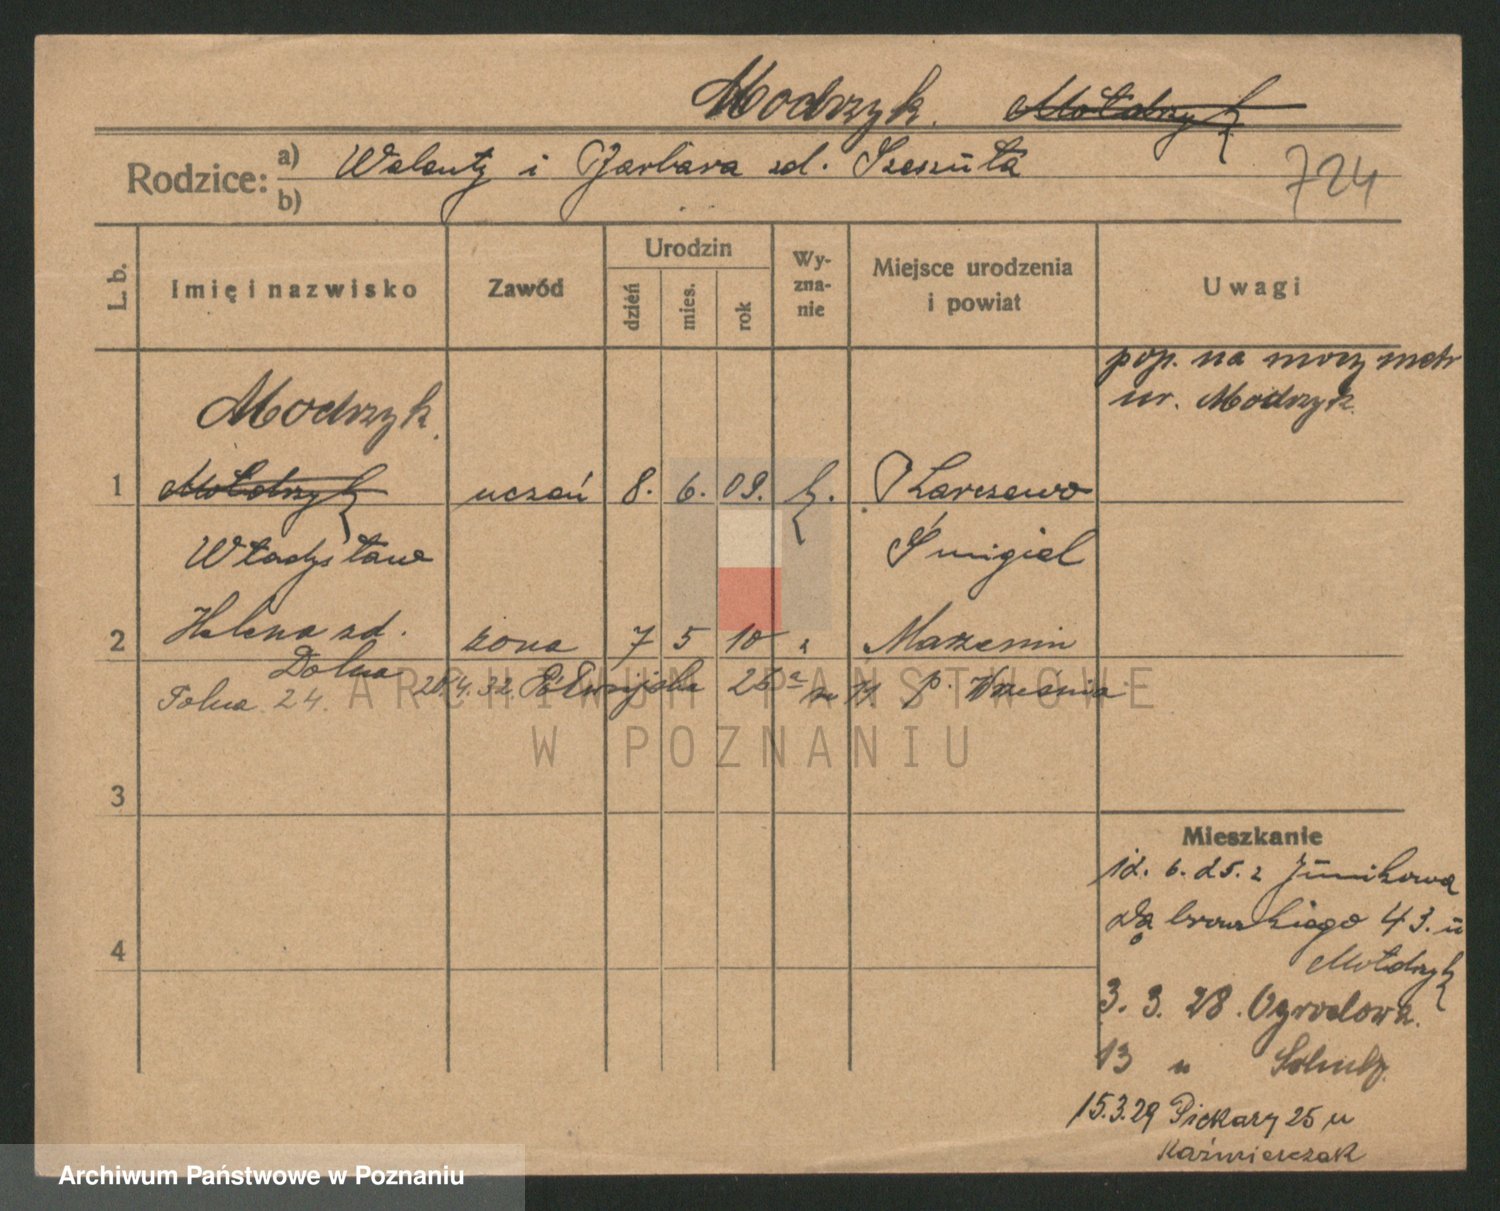 Modrzyk. Mołdrzyk
Rodzice: a) Walenty i Barbara zd. Szeszuła
b)
724
L. b.
Imię i nazwisko
Zawód
Urodzin
dzień
mies.
rok
Wy-
zna-
nie
Miejsce urodzenia
i powiat
Uwagi
pop. na mocy metr
ur. Modrzyk.
Modrzyk.
1 Mołdrzyk uczeń 8. 6. 09. k. Karczewo
Władysław Śmigiel
Helena zd.
2 Dolna żona 7 5 10 Marzenin
Folna 24. 26.4.32. 26a m 11. p. Września
3
4
Mieszkanie
12. 6. 25. z Junikowa
Dąbrowskiego 43. u
Mołdrzyk
3. 3. 28. Ogrodowa.
13 u
15.3.29 Piekary 25 u
Kaźmierczak
ARCHIWUM PAŃSTWOWE
W POZNANIU
Archiwum Państwowe w Poznaniu